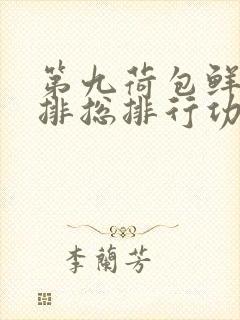 第九荷包鲜
排总排行功
李蘭芳